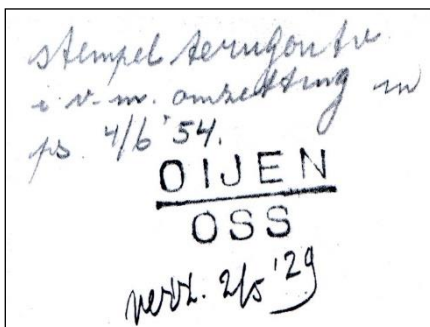 stempel terugontv.
i.v.m. omzetting in
ps. 4/6 '54.
OIJEN
OSS
verz. 2/5 '29